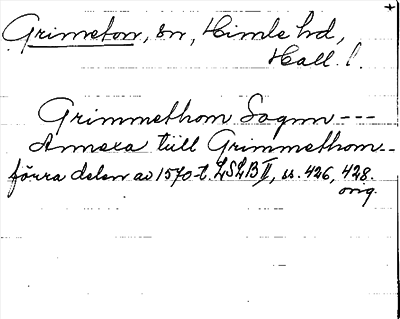 Grimeton, sn, Himle hd,
Hall. l.
Grimmethom Sognn ---
Annexa tiill Grimmethom--
förra delen av 1570-t. LSLB II, ss. 426, 428.
orig.